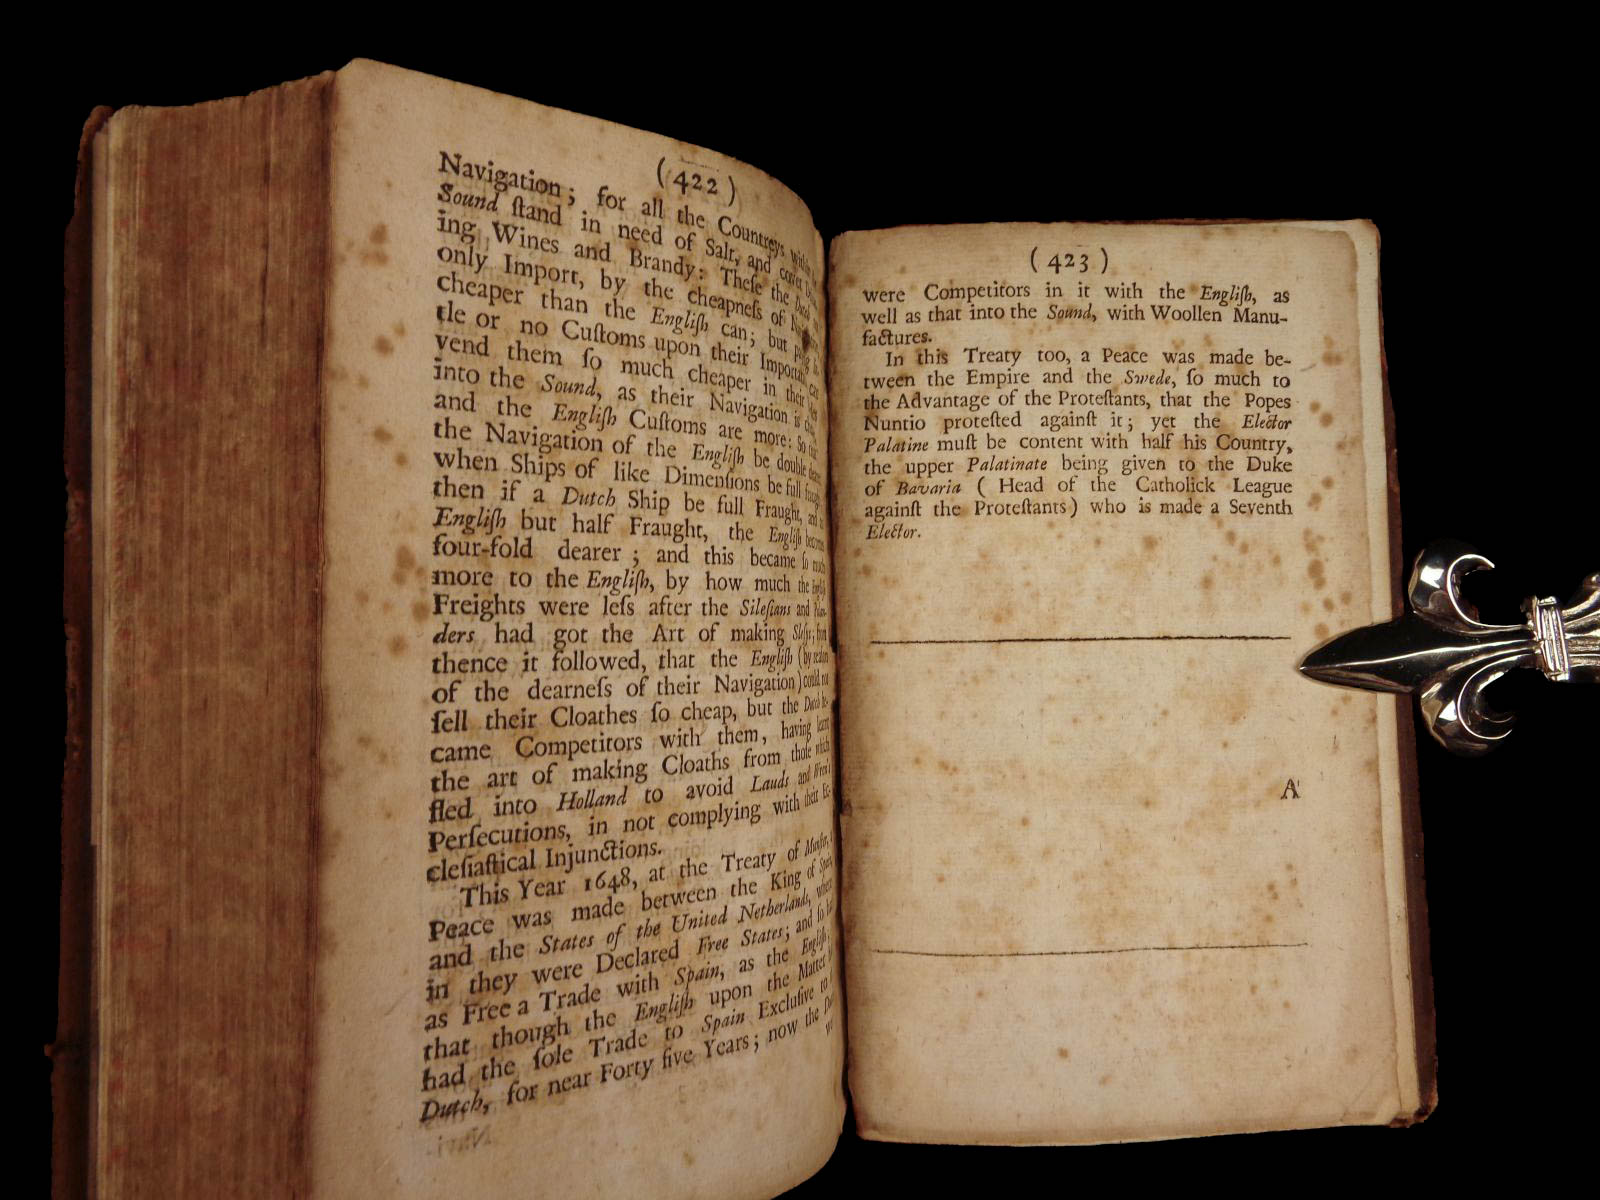 ( 422 )
Navigation; for all the Countreys within
Sound ſtand in need of Salt, and
ing Wines and Brandy: Theſe the Dutch
only Import, by the cheapneſs of
cheaper than the Engliſh can; but
tle or no Cuſtoms upon their
vend them ſo much cheaper in their
into the Sound, as their Navigation is
and the Engliſh Cuſtoms are more: So
the Navigation of the Engliſh be double
when Ships of like Dimenſions be full
then if a Dutch Ship be full Fraught, and
Engliſh but half Fraught, the Engliſh becomes
four-fold dearer; and this became ſo much
more to the Engliſh, by how much the Engliſh
Freights were leſs after the Sileſians and
ders had got the Art of making
thence it followed, that the Engliſh (by reaſon
of the dearneſs of their Navigation) could not
ſell their Cloathes ſo cheap, but the Dutch be-
came Competitors with them, having learnt
the art of making Cloaths from thoſe which
fled into Holland to avoid Lauds and Wren's
Perſecutions, in not complying with their Ec-
cleſiaſtical Injunctions.
This Year 1648, at the Treaty of Munſter,
Peace was made between the King of Spain,
and the States of the United Netherlands, where-
in they were Declared Free States; and ſo
as Free a Trade with Spain, as the Engliſh;
that though the Engliſh upon the Matter
had the ſole Trade to Spain Excluſive to
Dutch, for near Forty five Years; now the Dutch
( 423 )
were Competitors in it with the Engliſh, as
well as that into the Sound, with Woollen Manu-
factures.
In this Treaty too, a Peace was made be-
tween the Empire and the Swede, ſo much to
the Advantage of the Proteſtants, that the Popes
Nuntio proteſted againſt it; yet the Elector
Palatine muſt be content with half his Country,
the upper Palatinate being given to the Duke
of Bavaria ( Head of the Catholick League
againſt the Proteſtants) who is made a Seventh
Elector.
A